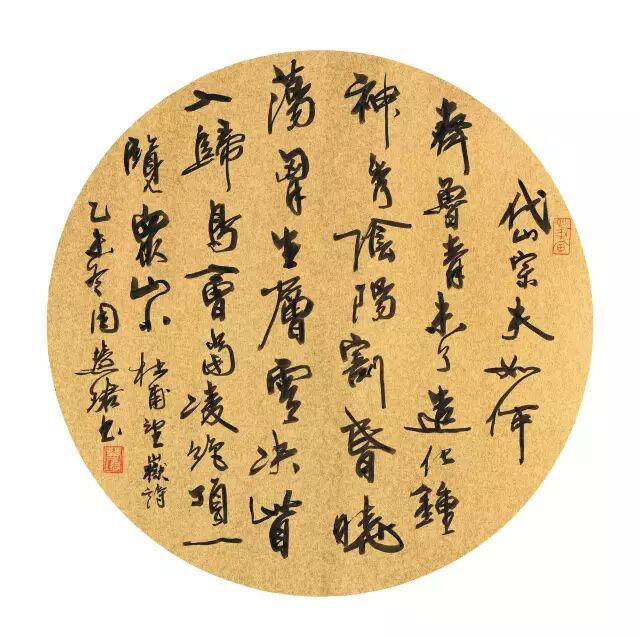 岱宗夫如何
齊魯青未了造化鍾
神秀陰陽割昏曉
蕩胷生層雲决眥
入歸鳥會當凌绝頂一
覽衆山小 杜甫望嶽詩
乙未冬周慧珺书